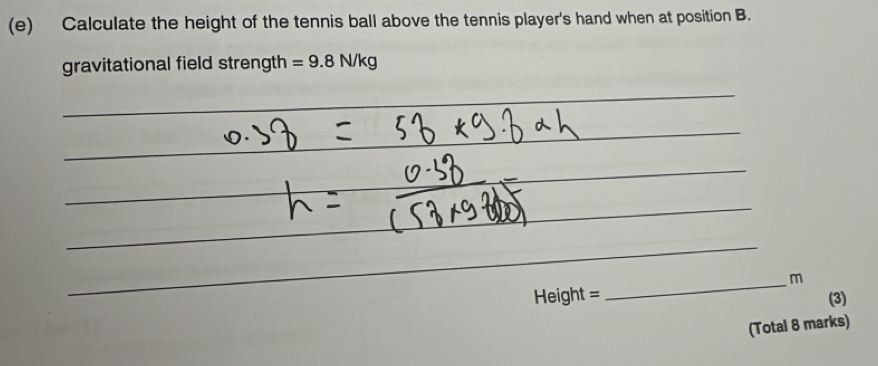 (e) Calculate the height of the tennis ball above the tennis player's hand when at position B.
gravitational field strength = 9.8 N/kg
0.38 = 58 × 9.8 × h
h = 0.38
(58 × 9.8
Height = m
(3)
(Total 8 marks)